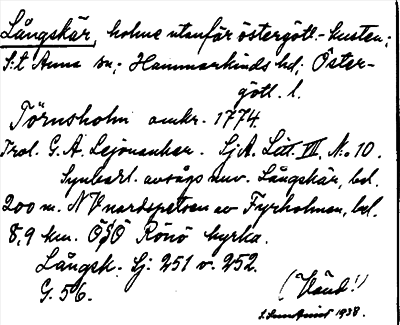 Långskär, holme utanför östergött.-kusten;
S:t Anna sn; Hammarkinds hd; Öster-
götl. l.
Törnsholm omkr. 1774
Trol. G. A. Lejonanker. Sj A. Litt. III, No 10.
Synbarl. avsågs nuv. Långskär, bel.
200 m. NV nordspetsen av Fyrholmen, bel.
8,9 km. ÖSÖ Rönö kyrka.
Långsk. Sj: 251 o. 252.
G. 56.
(Vänd!)
1938.